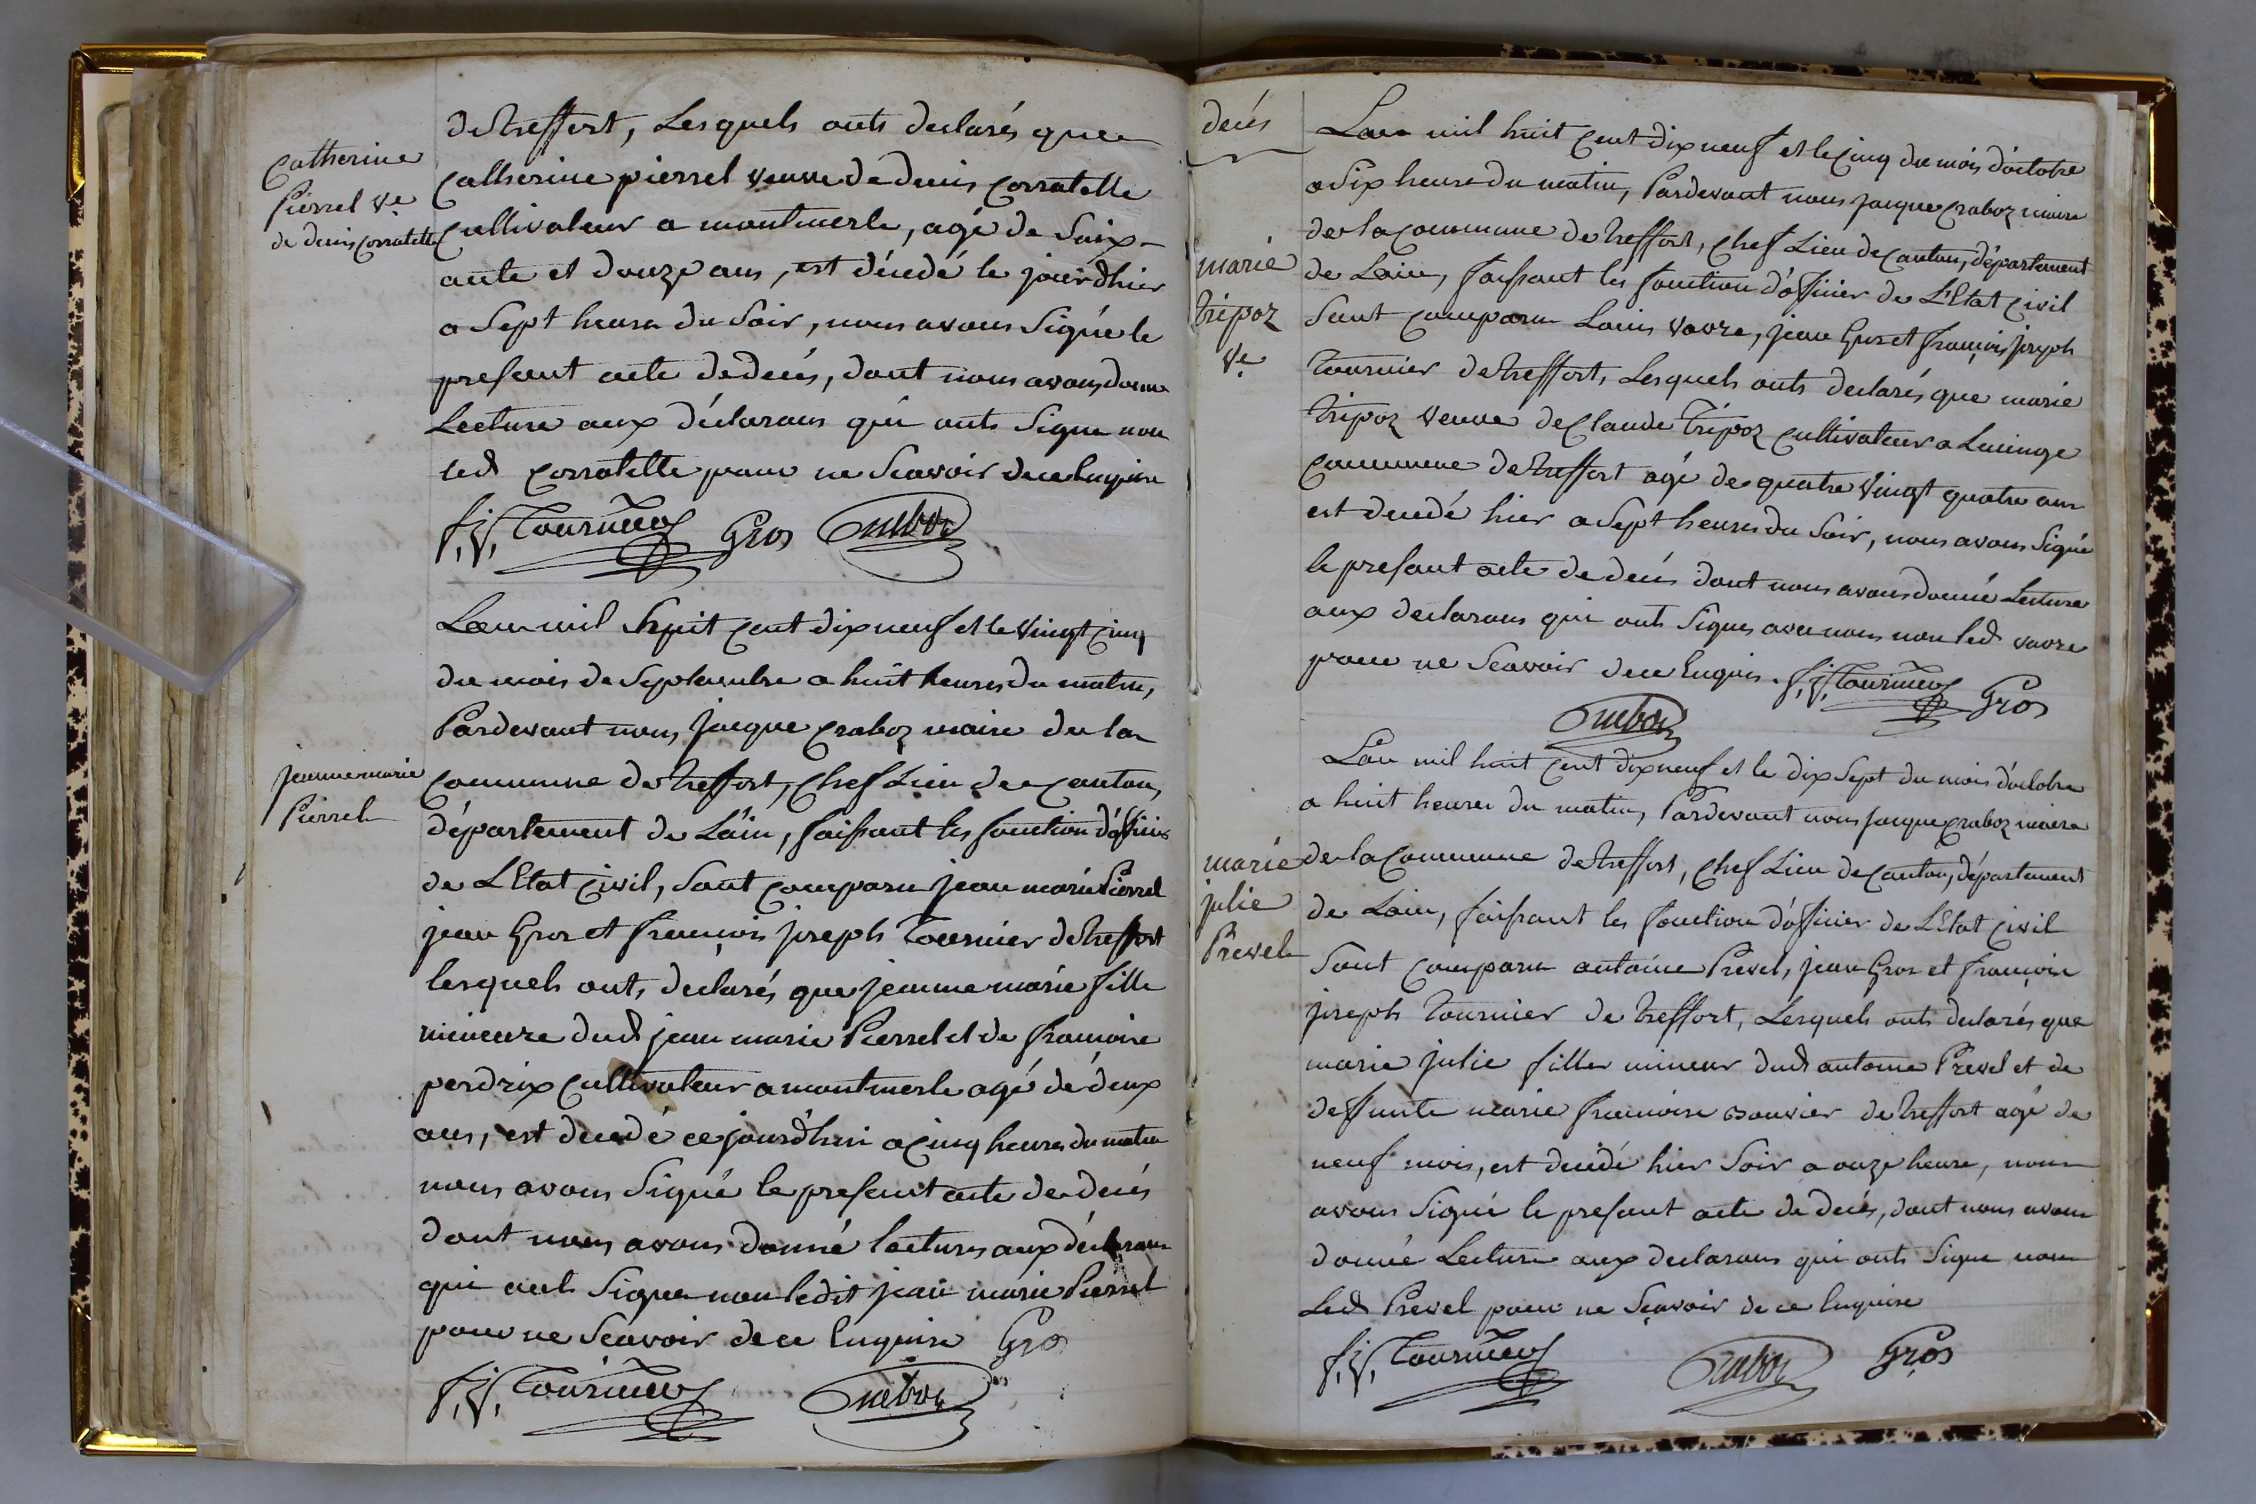 Catherine
Pierrel Ve
de denis corratelle
de treffort, Lesquels onts declarés que
Catherine pierrel veuve de denis Corratelle
Cultivateur a montmerle, agé de Soix-
ante et douze ans, est décédé le jourdhier
a Sept heures du Soir, nous avons Signé le
presant acte de decés, dont nous avons donné
Lecture aux déclarans qui onts Signé non
led Corratelle pour ne Scavoir de ce Enquire
f. j. Tournier Gros Craboz
Jeanne marie
Pierrel
Lan mil huit Cent dix neuf et le vingt Cinq
du mois de Septambre a huit heures du matin,
Pardevant nous, Jacque Craboz maire de la
Commune de treffort, Chef Lieu de Canton,
département de L'ain, faissant les fonction d'officier
de L'Etat Civil, Sont Comparu jean marie Pierrel
jean Gros et françois joseph Tournier de treffort
lesquels onts declarés que jeanne marie fille
mineure dud jean marie Pierrel et de francoise
perdrix Cultivateur a montmerle agé de deux
ans, est decedé ce jourd'hui a Cinq heures du matin
nous avons Signé le presant acte de decés
dont nous avons donné lectures aux déclarans
qui onts Signer non ledit jean marie Pierrel
pour ne Scavoir de ce Enquire Gros
f. j. Tournier Craboz
decés
marie
tripoz
Ve
Lan mil huit Cent dix neuf et le Cinq du mois d'octobre
a Six heure du matin, Pardevant nous jacque Craboz maire
de la Commune de treffort, Chef Lieu de Canton, département
de Lain, faissant les fonction d'officier de L'Etat Civil
Sont Comparu Louis vavre, jean Gros et françois joseph
Tournier de treffort, Lesquels onts declarés que marie
tripoz veuve de Claude tripoz Cultivateur a Lucinge
Commune de treffort agé de quatre vingt quatre ans
est decedé hier a Sept heures du Soir, nous avons Signé
le presant acte de decés dont nous avons donné Lecture
aux declarans qui onts Signes avec nous non led vavre
pour ne Scavoir de ce Enquis. f. j. Tournier Gros
Craboz
marie
julie
Prevel
Lan mil huit Cent dix neuf et le dix Sept du mois d'octobre
a huit heures du matin, Pardevant nous jacque Craboz maire
de la Commune de treffort, Chef Lieu de Canton, département
de Lain, faissant les fonction d'officier de L'Etat Civil
Sont Comparu antoine Prevel, jean Gros et françois
joseph Tournier de treffort, Lesquels onts declarés que
marie julie fille mineur dud antoine Prevel et de
deffunte marie francoise bouvier de treffort agé de
neuf mois, est decedé hier Soir a onze heure, nous
avons Signé le presant acte de decés, dont nous avons
donné Lecture aux declarans qui onts Signe non
Led Prevel pour ne Scavoir de ce Enquire
f. j. Tournier Craboz Gros